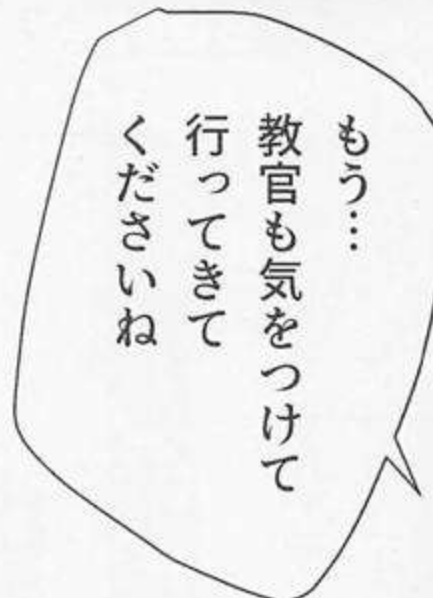 もう…
教官も気をつけて
行ってきて
くださいね